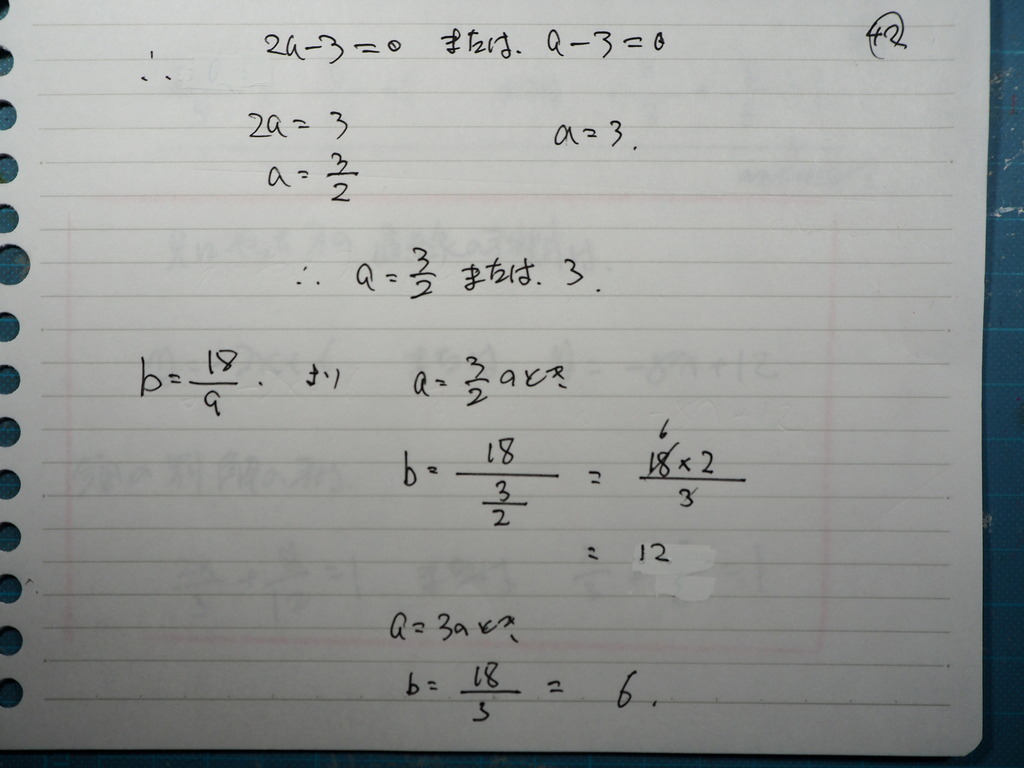 ∴ 2a-3=0 または. a-3=0 ㊷
2a=3 a=3.
a=3/2
∴ a=3/2 または. 3.
b=18/a. より a=3/2のとき
b=18/(3/2) = 6 18×2/3
= 12
a=3のとき
b=18/3 = 6.